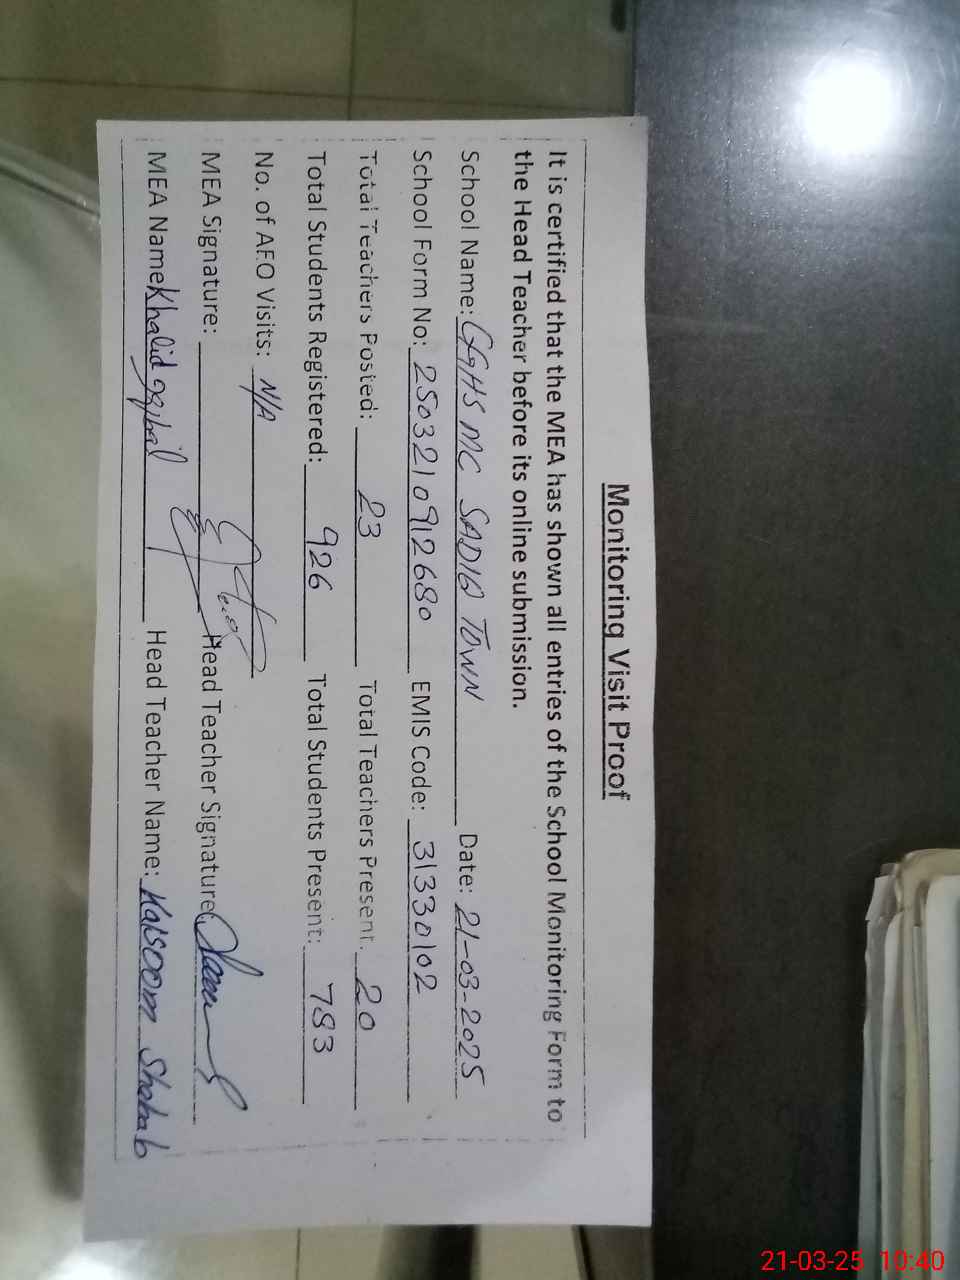 Monitoring Visit Proof
It is certified that the MEA has shown all entries of the School Monitoring Form to
the Head Teacher before its online submission.
School Name: GGHS MC SADIQ TOWN Date: 21-03-2025
School Form No: 2503210912680 EMIS Code: 31330102
Total Teachers Posted: 23 Total Teachers Present: 20
Total Students Registered: 926 Total Students Present: 783
No. of AEO Visits: N/A
MEA Signature: Head Teacher Signature
MEA Name Khalid Head Teacher Name: Kalsoom Shabab
21-03-25 10:40